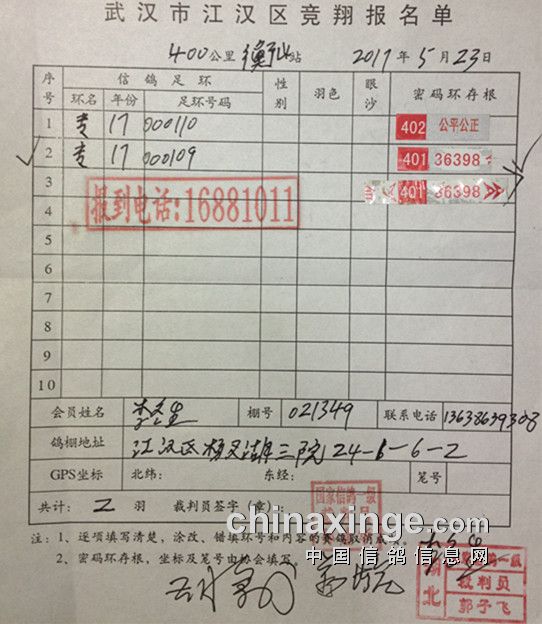 武汉市江汉区竞翔报名单
400公里衡山站 2017年5月23日
序号 信鸽足环 性别 羽色 眼沙 密码环存根
环名 年份 足环号码
1 专 17 000110 402 公平公正
2 专 17 000109 401 36398
3 401 36398
报到电话:16881011
4
5
6
7
8
9
10
会员姓名 棚号 021349 联系电话 13638639308
鸽棚地址 江汉区杨汊湖三院24-6-6-2
GPS坐标 北纬: 东经: 笔号
共计: 2 羽 裁判员签字(章):
国家信鸽一级
裁判员
注:1、逐项填写清楚,涂改、错填环号和内容的赛鸽取消成
2、密码环存根,坐标及笔号由协会填写。
chinaxinge.com
中国信鸽信息网
湖北
裁判员
郭子飞